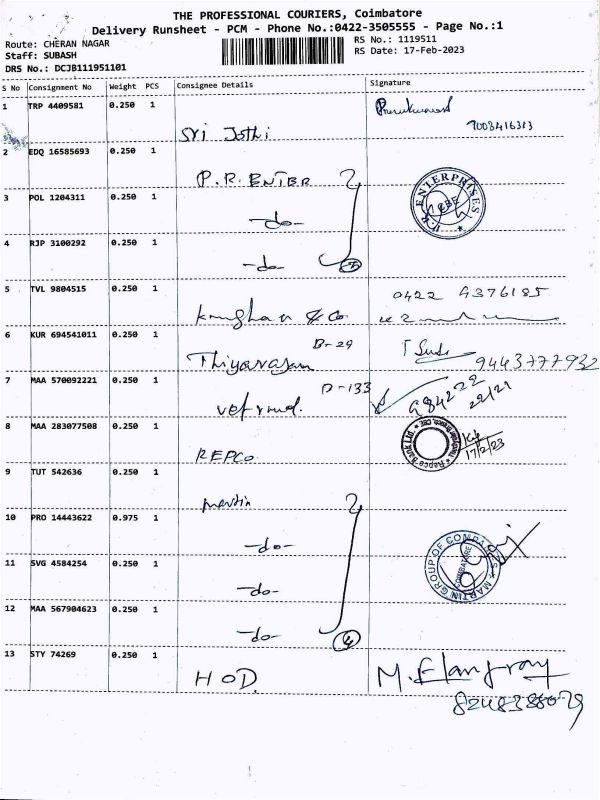 THE PROFESSIONAL COURIERS, Coimbatore
Delivery Runsheet - PCM - Phone No.:0422-3505555 - Page No.:1
Route: CHERAN NAGAR
Staff: SUBASH
DRS No.: DCJB111951101
RS No.: 1119511
RS Date: 17-Feb-2023
S No Consignment No Weight PCS Consignee Details Signature
1 TRP 4409581 0.250 1
Sri Jothi 9003416313
2 EDQ 16585693 0.250 1
P.R. ENTER
3 POL 1204311 0.250 1
-do-
ENTERPRISES
CBE
4 RJP 3100292 0.250 1
-do- 3
5 TVL 9804515 0.250 1
& Co 0422 4376185
6 KUR 694541011 0.250 1
Thiyagarajan B-29 9443777932
7 MAA 570092221 0.250 1
D-133 984222
22/21
8 MAA 283077508 0.250 1
REPCO
Repco Bank Ltd.
17/2/23
9 TUT 542636 0.250 1
Martin
10 PRO 14443622 0.975 1
-do-
MARTIN GROUP OF COMPANIES
COIMBATORE
11 SVG 4584254 0.250 1
-do-
12 MAA 567904623 0.250 1
-do- 4
13 STY 74269 0.250 1
HOD M. Elangovan